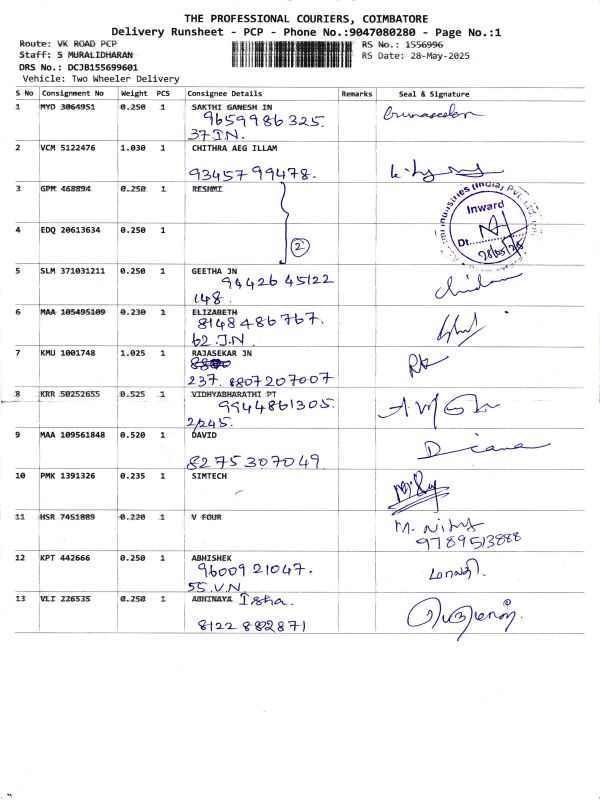 THE PROFESSIONAL COURIERS, COIMBATORE
Delivery Runsheet - PCP - Phone No.:9047080280 - Page No.:1
Route: VK ROAD PCP RS No.: 1556996
Staff: S MURALIDHARAN RS Date: 28-May-2025
DRS No.: DCJB155699601
Vehicle: Two Wheeler Delivery
S No Consignment No Weight PCS Consignee Details Remarks Seal & Signature
1 MYD 3064951 0.250 1 SAKTHI GANESH IN
9659986325.
37 I N.
2 VCM 5122476 1.030 1 CHITHRA AEG ILLAM
9345799478.
3 GPM 468894 0.250 1 RESHMI
Inward
4 EDQ 20613634 0.250 1
2
Dt. 28/05/25
5 SLM 371031211 0.250 1 GEETHA JN
9442645122
148.
6 MAA 105495109 0.230 1 ELIZABETH
8148486767.
62. J.N.
7 KMU 1001748 1.025 1 RAJASEKAR JN
237. 8807207007
8 KRR 50252655 0.525 1 VIDHYABHARATHI PT
9944861305.
2/245.
9 MAA 109561848 0.520 1 DAVID
8275307049. Diana
10 PMK 1391326 0.235 1 SIMTECH
11 HSR 7451889 0.220 1 V FOUR
9789513888
12 KPT 442666 0.250 1 ABHISHEK
9600921047.
55. V.N.
13 VLI 226535 0.250 1 ABHINAYA Isha.
8122882871